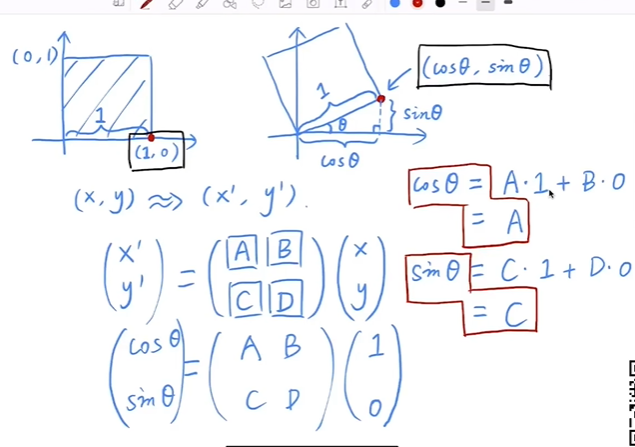 (0,1)
1
(1,0)
1
θ
cosθ
} sinθ
(cosθ, sinθ)
(x, y) ⇝ (x', y').
(x' y') = (A B C D) (x y)
(cosθ sinθ) = (A B C D) (1 0)
cosθ = A·1 + B·0
= A
sinθ = C·1 + D·0
= C